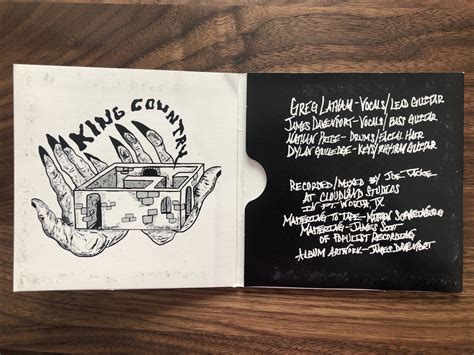 KING COUNTRY
GREG LATHAM - VOCALS/LEAD GUITAR
JAMES DAVENPORT - VOCALS/BASS GUITAR
NATHAN PRICE - DRUMS/FACIAL HAIR
DYLAN - KEYS/RHYTHM GUITAR
RECORDED/MIXED BY JOE
AT CLOUDLAND STUDIOS
IN FT. WORTH, TX
MASTERING TO TAPE -
MASTERING - JAMES SCOTT
OF POPULIST RECORDING
ALBUM ARTWORK - JAMES DAVENPORT